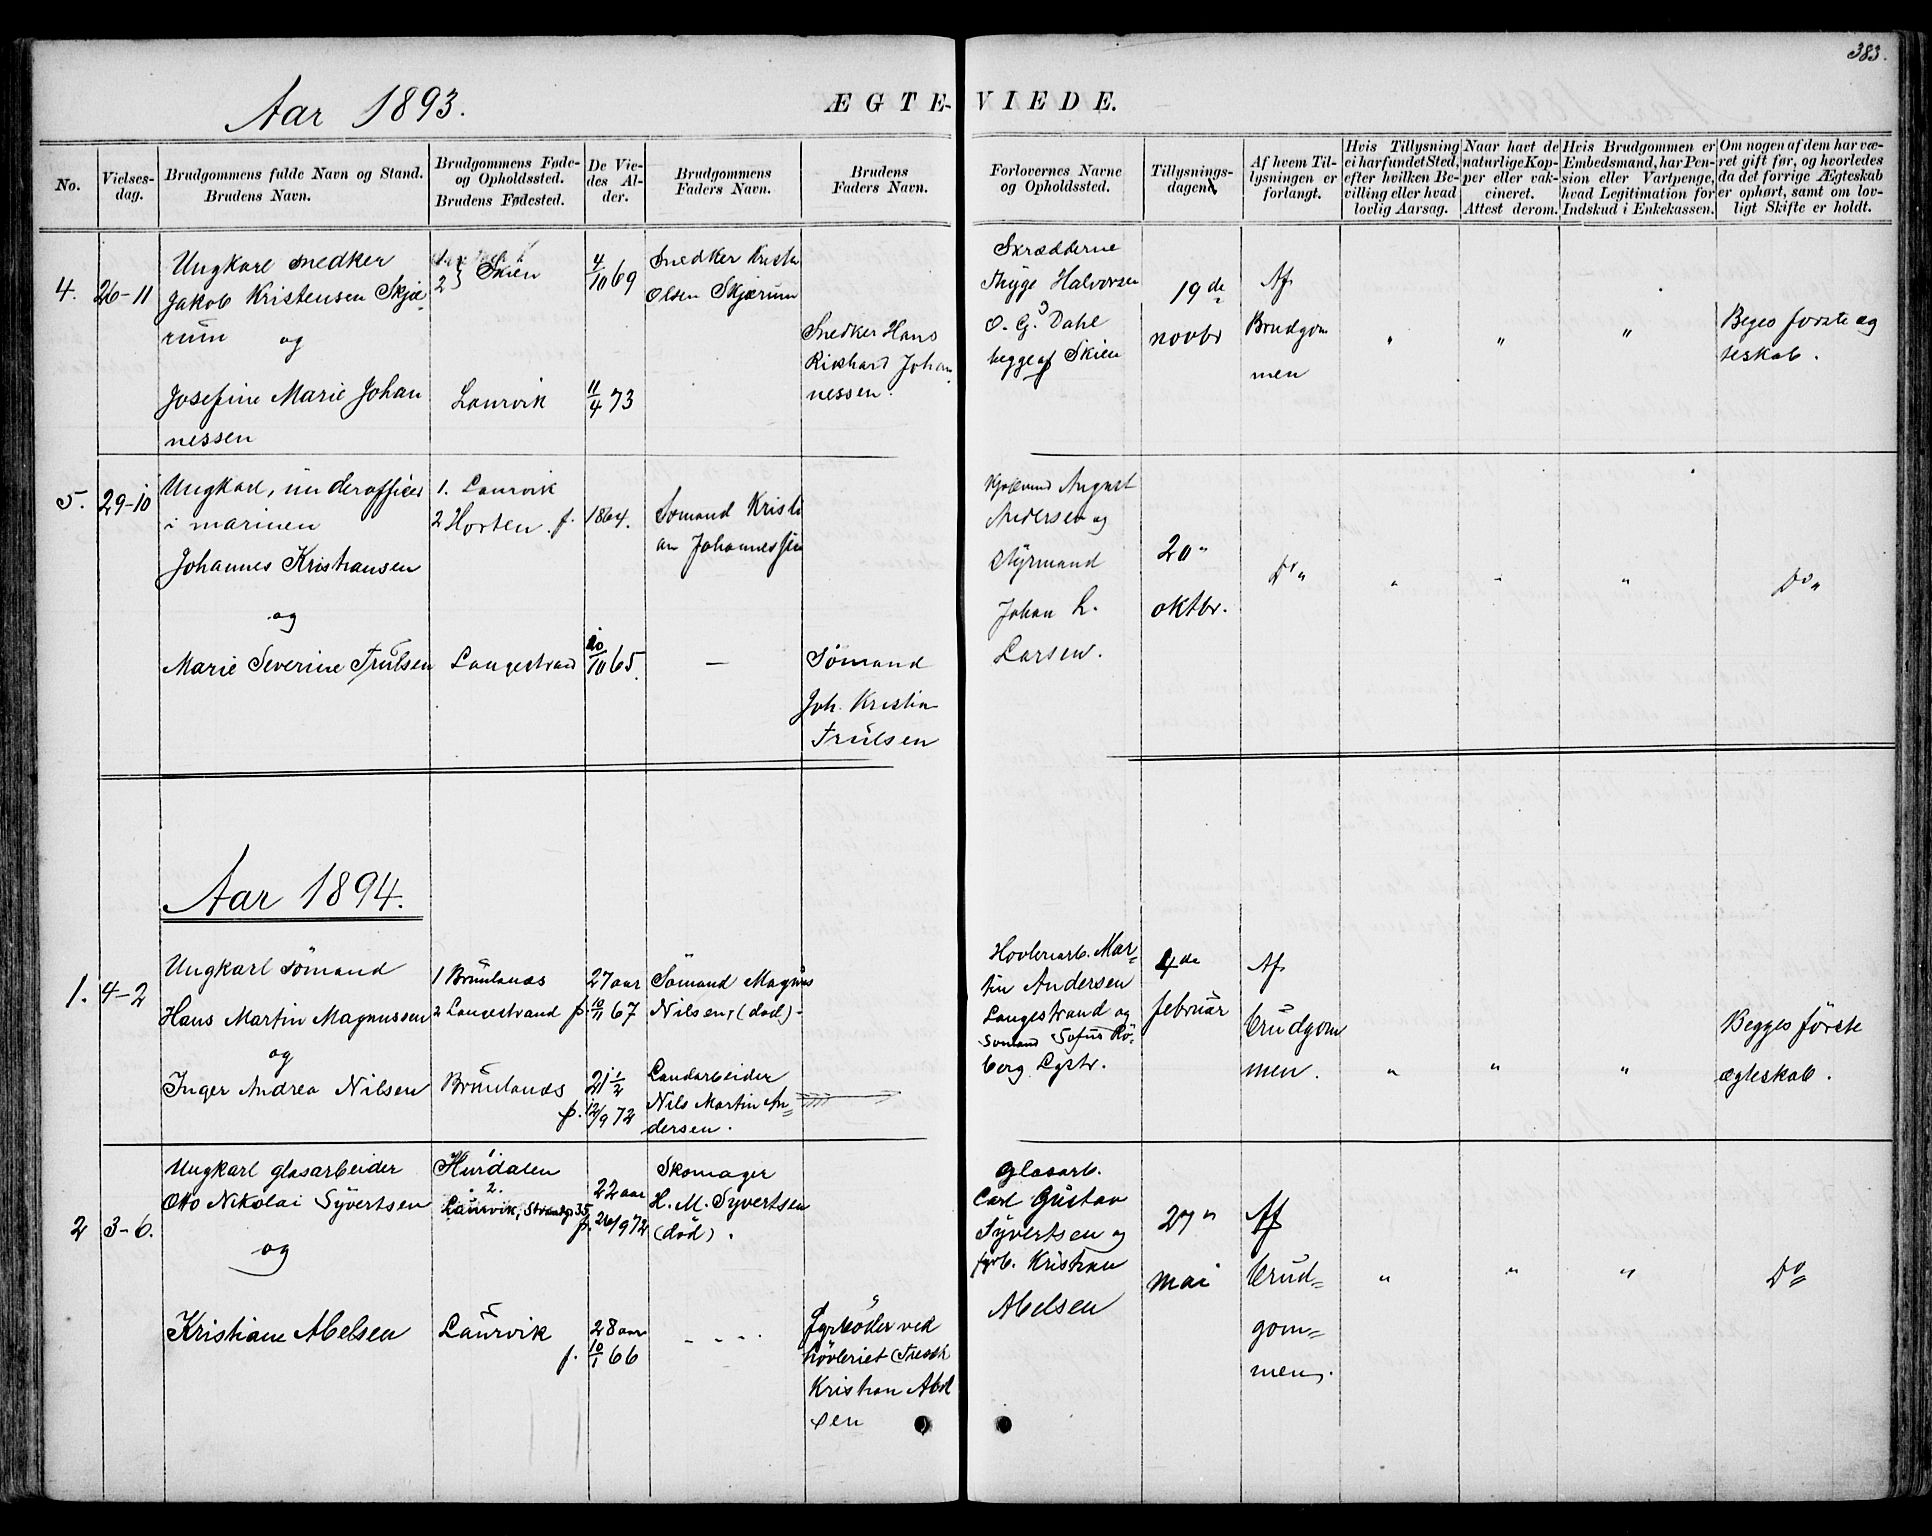 383.
Aar 1893.
ÆGTE-VIEDE.
No.
Vielses-
dag.
Brudgommens fulde Navn og Stand.
Brudens Navn.
Brudgommens Føde-
og Opholdssted.
Brudens Fødested.
De Vie-
des Al-
der.
Brudgommens
Faders Navn.
Brudens
Faders Navn.
Forlovernes Navne
og Opholdssted.
Tillysnings-
dagene
Af hvem Til-
lysningen er
forlangt.
Hvis Tillysning
ei har fundet Sted,
efter hvilken Be-
villing eller hvad
lovlig Aarsag.
Naar havt de
naturlige Kop-
per eller vak-
cineret.
Attest derom.
Hvis Brudgommen er
Embedsmand, har Pen-
sion eller Vartpenge,
hvad Legitimation for
Indskud i Enkekassen.
Om nogen af dem har væ-
ret gift før, og hvorledes
da det forrige Ægteskab
er ophørt, samt om lov-
ligt Skifte er holdt.
4.
26-11
Ungkarl snedker
Jakob Kristensen Skjæ-
rum og
Josefine Marie Johan
nessen
1.
2 } Skien
Laurvik
4/10 69
11/4 73
Snedker Krist
Olsen Skjærum
Snedker Hans
Rikhard Johan
nessen.
Skrædderne
Thyge Halvorsen
O. G. Dahl
begge af Skien
19de
novbr
Af
Brudgom
men
"
"
"
Beges første æg
teskab.
5.
29-10
Ungkarl, underofficer
i marinen
Johannes Kristiansen
og
Marie Severine Trulsen
1. Laurvik
2 Horten. f.
Langestrand
1864.
10/10 65.
Sømand Kristi
an Johannessen
—
Sømand
Joh. Kristian
Trulsen
August
Andersen og
Styrmand
Johan L.
Larsen.
20"
oktbr.
Do "
"
"
"
Do "
Aar 1894.
1.
4-2
Ungkarl sømand
Hans Martin Magnussen
og
Inger Andrea Nilsen
1 Brunlanes
2 Langestrand f.
Brunlanes
f.
27 aar
10/11 67
21 1/2
12/9 72
Sømand Magnus
Nilsen, (død).
Landarbeider
Nils Martin An=
dersen.
Hovleriarb. Mar=
tin Andersen
Langestrand og
Sømand Sofus Rö-
berg Lgstr.
4de
februar
Af
brudgom
men.
"
"
"
Begges første
ægteskab.
2
3-6.
Ungkarl glasarbeider
Otto Nikolai Syvertsen
og
Kristiane Abelsen
1
Hurdalen
2.
Laurvik, Strandg 35
f.
Laurvik
f.
22 aar
26/9 72
28 aar
10/1 66
Skomager
H. M. Syvertsen
(død).
- - -
Fyrbøder ved
høvleriet (Tresch
Kristian Abel
sen
Glasarb.
Carl Gustav
Syvertsen og
fyrb. Kristian
Abelsen
27"
mai
Af
brud=
gom=
men.
"
"
"
Do